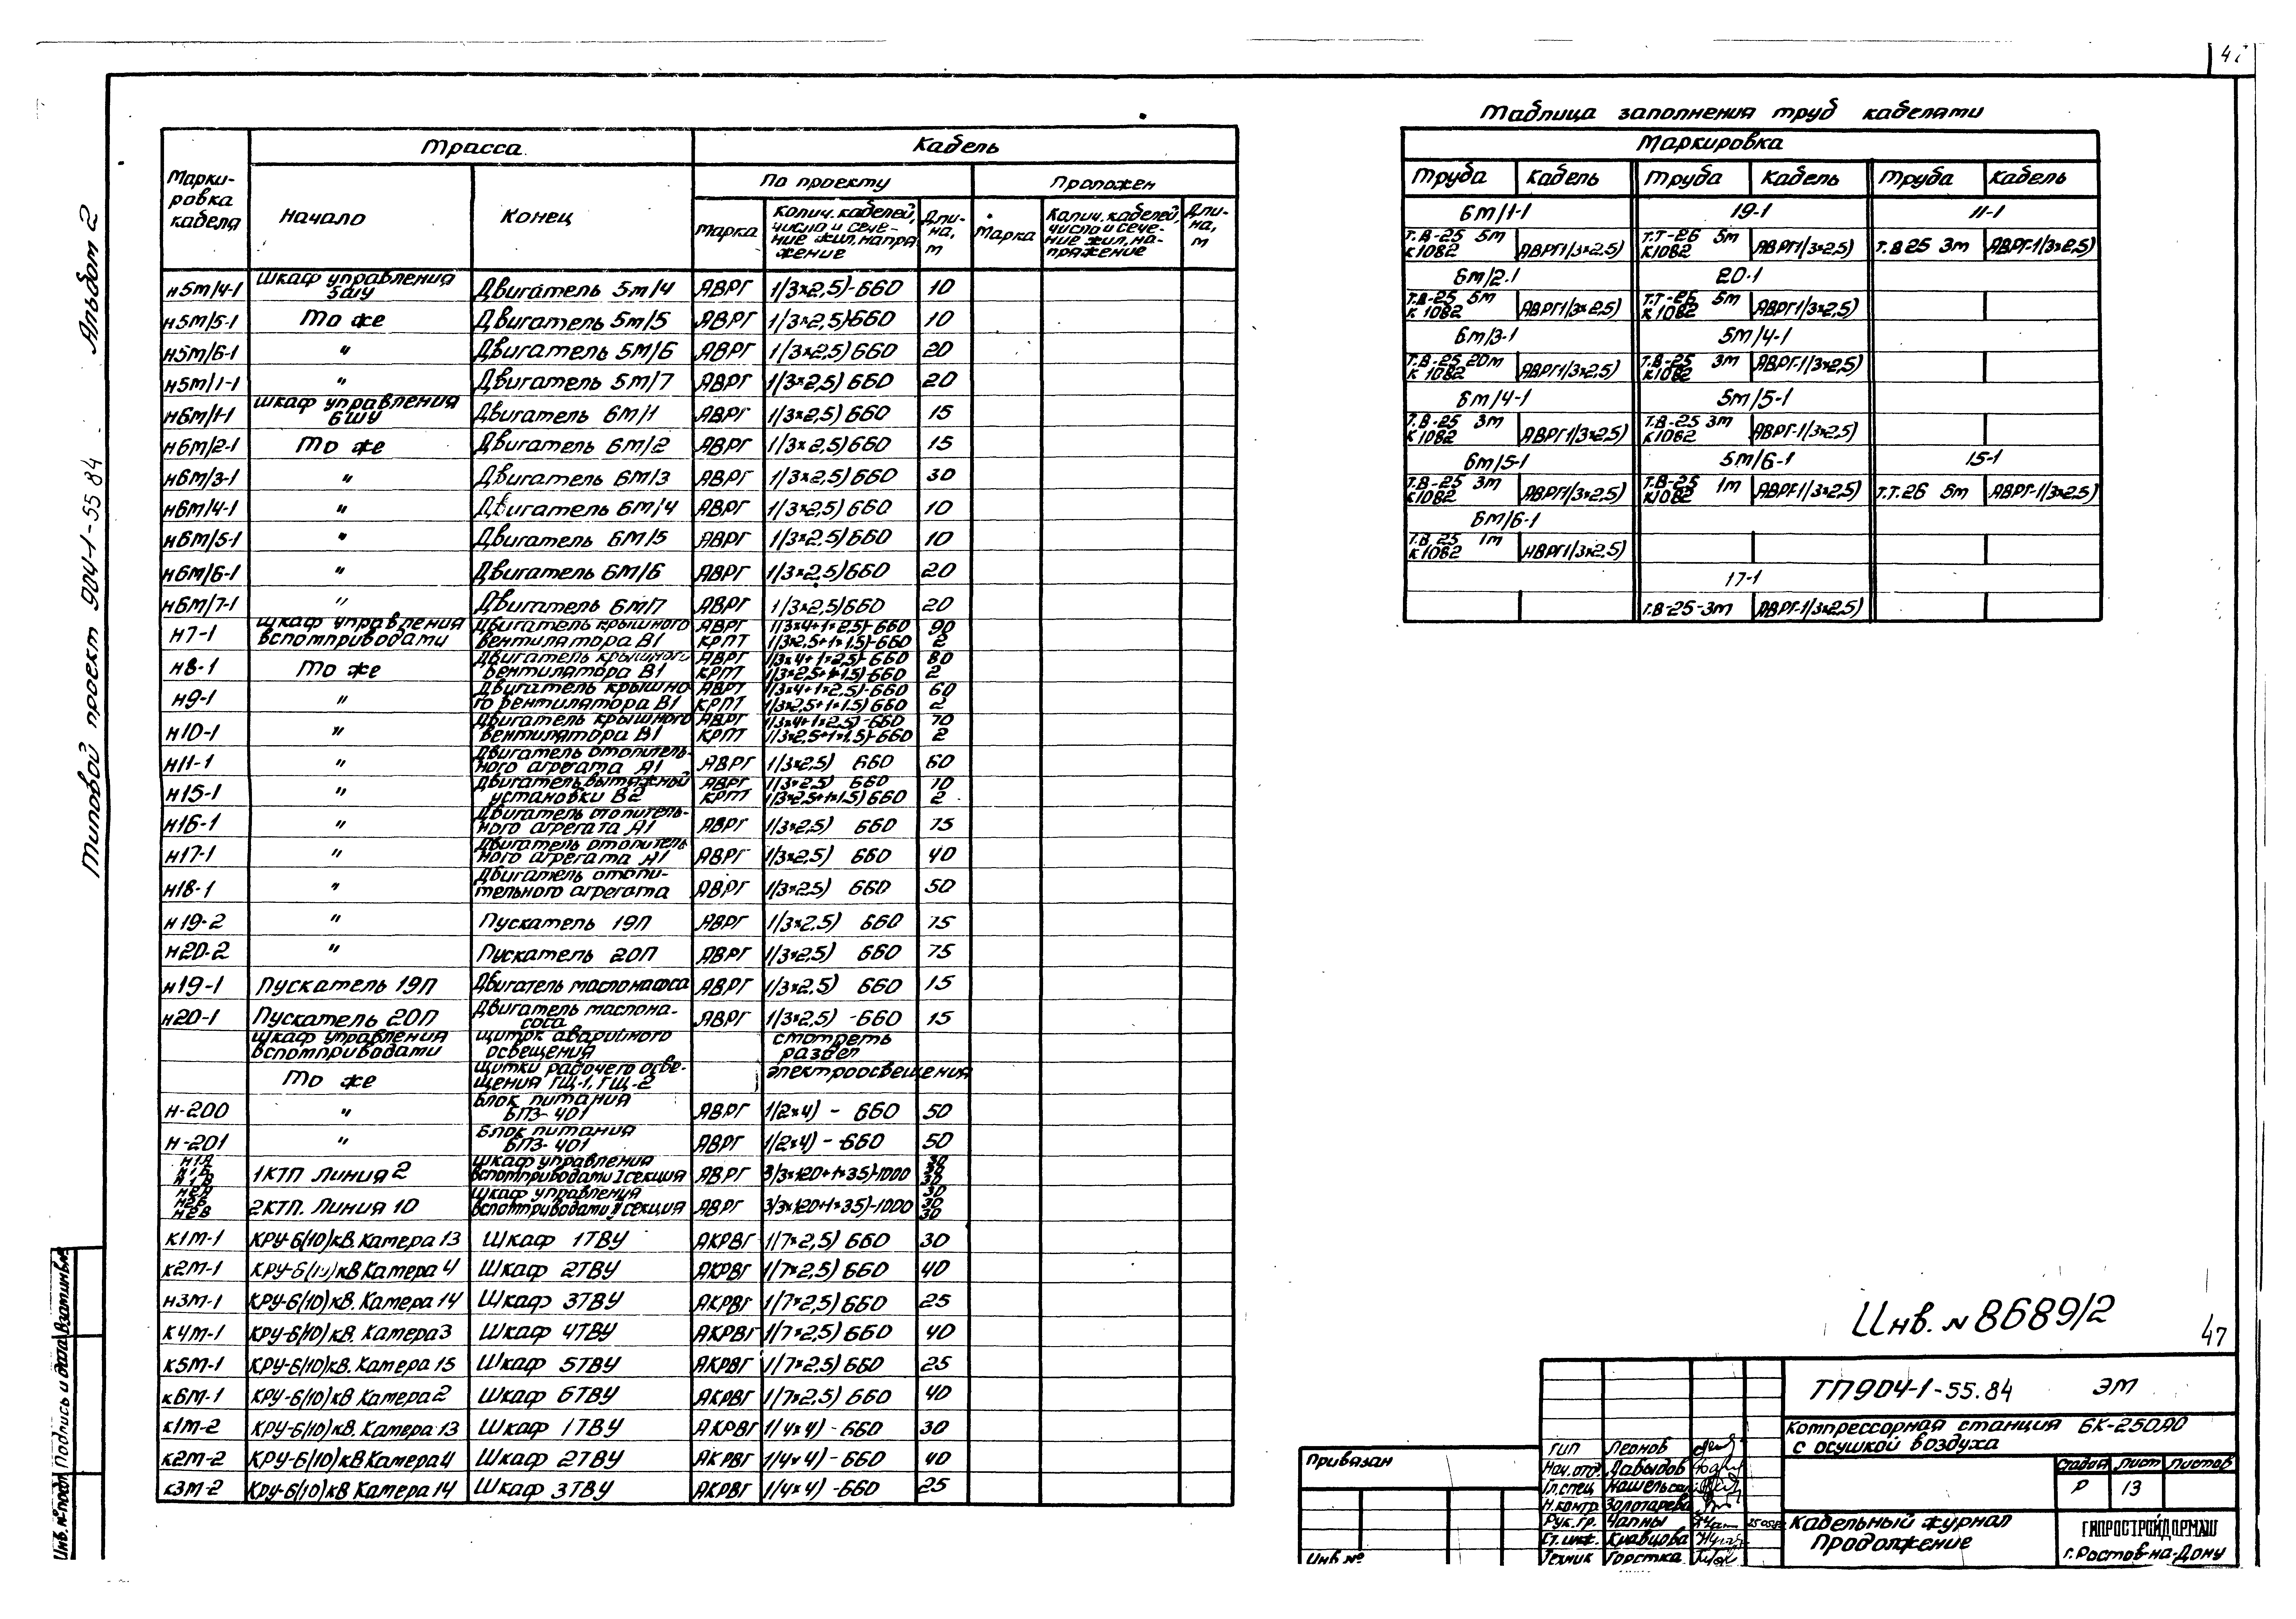 Типовой проект 904-1-55.84 Альбом 2
Марки-
ровка
кабеля
Трасса
Кабель
Начало
Конец
По проекту
Проложен
Марка
Колич. кабелей,
число и сече-
ние жил, напря
жение
Дли-
на,
м
Марка
Колич. кабелей,
число и сече-
ние жил, на-
пряжение
Дли-
на,
м
н5м/4-1 Шкаф управления 5шу Двигатель 5м/4 АВРГ 1/3×2,5)-660 10
н5м/5-1 То же Двигатель 5м/5 АВРГ 1/3×2,5)-660 10
н5м/6-1 " Двигатель 5м/6 АВРГ 1/3×2,5) 660 20
н5м/1-1 " Двигатель 5м/7 АВРГ 1/3×2,5) 660 20
н6м/1-1 Шкаф управления 6шу Двигатель 6м/1 АВРГ 1/3×2,5) 660 15
н6м/2-1 То же Двигатель 6м/2 АВРГ 1/3×2,5) 660 15
н6м/3-1 " Двигатель 6м/3 АВРГ 1/3×2,5) 660 30
н6м/4-1 " Двигатель 6м/4 АВРГ 1/3×2,5) 660 10
н6м/5-1 " Двигатель 6м/5 АВРГ 1/3×2,5) 660 10
н6м/6-1 " Двигатель 6м/6 АВРГ 1/3×2,5) 660 20
н6м/7-1 " Двигатель 6м/7 АВРГ 1/3×2,5) 660 20
н7-1 Шкаф управления Двигатель крышного АВРГ 1/3×4+1×2,5)-660 90
вспомприводами вентилятора В1 КРПТ 1/3×2,5+1×1,5)-660 2
н8-1 То же Двигатель крышного АВРГ 1/3×4+1×2,5)-660 80
вентилятора В1 КРПТ 1/3×2,5+1×1,5)-660 2
н9-1 " Двигатель крышно АВРГ 1/3×4+1×2,5)-660 60
го вентилятора В1 КРПТ 1/3×2,5+1×1,5) 660 2
н10-1 " Двигатель крышного АВРГ 1/3×4+1×2,5)-660 70
вентилятора В1 КРПТ 1/3×2,5+1×1,5)-660 2
н11-1 " Двигатель отопитель-
ного агрегата А1 АВРГ 1/3×2,5) 660 60
н15-1 " Двигатель вытяжной АВРГ 1/3×2,5) 660 10
установки В2 КРПТ 1/3×2,5+1×1,5) 660 2
н16-1 " Двигатель отопитель-
ного агрегата А1 АВРГ 1/3×2,5) 660 75
н17-1 " Двигатель отопитель
ного агрегата А1 АВРГ 1/3×2,5) 660 40
н18-1 " Двигатель отопи-
тельного агрегата АВРГ 1/3×2,5) 660 50
н19-2 " Пускатель 19П АВРГ 1/3×2,5) 660 75
н20-2 " Пускатель 20П АВРГ 1/3×2,5) 660 75
н19-1 Пускатель 19П Двигатель маслонасоса АВРГ 1/3×2,5) 660 15
н20-1 Пускатель 20П Двигатель маслона-
соса АВРГ 1/3×2,5) -660 15
Шкаф управления Щиток аварийного смотреть
вспомприводами освещения раздел
То же Щитки рабочего осве- электроосвещения
щения ГЩ-1, ГЩ-2
н-200 " Блок питания
БПЗ-401 АВРГ 1/2×4) - 660 50
н-201 " Блок питания
БПЗ-401 АВРГ 1/2×4) - 660 50
н1А н1Б н1В 1КТП Линия 2 Шкаф управления
вспомприводами I секция АВРГ 3/3×120+1×35)-1000 30 30 30
н2А н2Б н2В 2КТП. Линия 10 Шкаф управления
вспомприводами II секция АВРГ 3/3×120+1×35)-1000 30 30 30
к1м-1 КРУ-6(10)кВ. Камера 13 Шкаф 1ТВУ АКРВГ 1/7×2,5) 660 30
к2м-1 КРУ-6(10)кВ Камера 4 Шкаф 2ТВУ АКРВГ 1/7×2,5) 660 40
н3м-1 КРУ-6(10)кВ. Камера 14 Шкаф 3ТВУ АКРВГ 1/7×2,5) 660 25
к4м-1 КРУ-6(10)кВ. Камера 3 Шкаф 4ТВУ АКРВГ 1/7×2,5) 660 40
к5м-1 КРУ-6(10)кВ. Камера 15 Шкаф 5ТВУ АКРВГ 1/7×2,5) 660 25
к6м-1 КРУ-6(10)кВ Камера 2 Шкаф 6ТВУ АКРВГ 1/7×2,5) 660 40
к1м-2 КРУ-6(10)кВ. Камера 13 Шкаф 1ТВУ АКРВГ 1/4×4) -660 30
к2м-2 КРУ-6(10)кВ Камера 4 Шкаф 2ТВУ АКРВГ 1/4×4) -660 40
к3м-2 КРУ-6(10)кВ Камера 14 Шкаф 3ТВУ АКРВГ 1/4×4) -660 25
Таблица заполнения труб кабелями
Маркировка
Труба Кабель Труба Кабель Труба Кабель
6м/1-1 19-1 11-1
Т.В-25 5м К1082 АВРГ1/3×2,5) Т.Т-26 5м К1082 АВРГ1/3×2,5) Т.В 25 3м АВРГ-1/3×2,5)
6м/2-1 20-1
Т.В-25 5м К 1082 АВРГ1/3×2,5) Т.Т-26 5м К 1082 АВРГ1/3×2,5)
6м/3-1 5м/4-1
Т.В-25 20м К 1082 АВРГ1/3×2,5) Т.В-25 3м К1082 АВРГ-1/3×2,5)
6м/4-1 5м/5-1
Т.В-25 3м К1082 АВРГ1/3×2,5) Т.В-25 3м К1082 АВРГ-1/3×2,5)
6м/5-1 5м/6-1 15-1
Т.В-25 3м К1082 АВРГ1/3×2,5) Т.В-25 1м К1082 АВРГ-1/3×2,5) Т.Т.26 5м АВРГ-1/3×2,5)
6м/6-1
Т.В 25 1м К1082 АВРГ1/3×2,5)
17-1
Т.В-25-3м АВРГ-1/3×2,5)
Инв. № 8689/2
47
ТП904-1-55.84 ЭМ
Компрессорная станция 6К-250А0
с осушкой воздуха
Стадия Лист Листов
Р 13
Кабельный журнал
Продолжение
ГИПРОСТРОЙДОРМАШ
г. Ростов-на-Дону
Привязан
Инв №
ГИП Леонов
Нач. отд. Давыдов
Гл. спец
Н. контр Золотарева
Рук. гр. Чапны
Ст. инж. Кравцова
Техник Горстка
Взам.инв.№
Подпись и дата
Инв. № подл